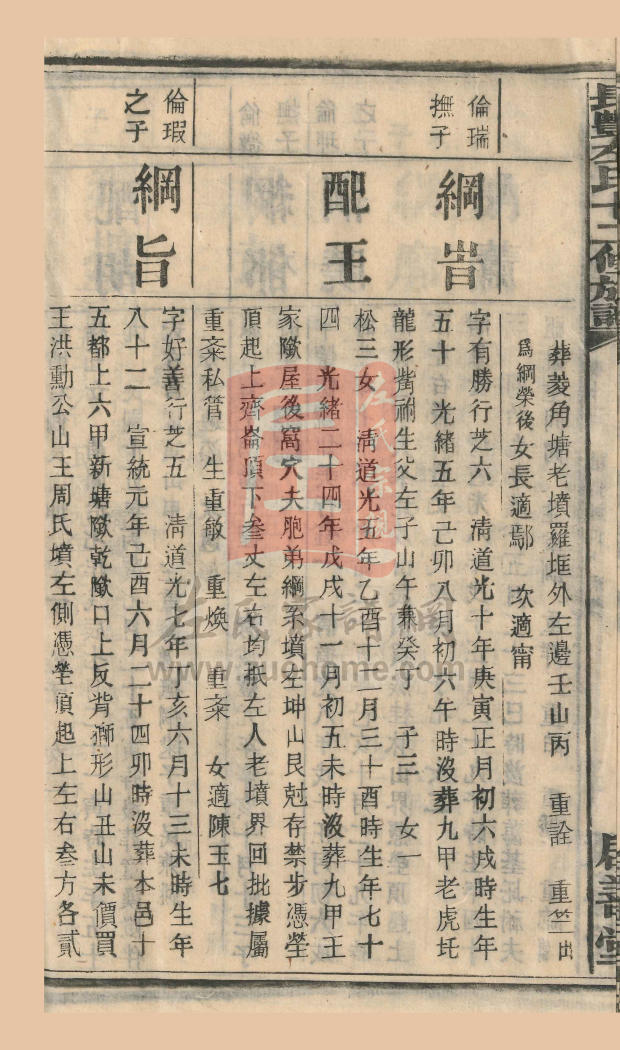 長豐左氏十二修族譜
葬菱角塘老墳羅框外左邊壬山丙 重詮 重竺出
爲綱榮後女長適鄢 次適甯
倫瑞撫子
綱旹
字有勝行芝六 清道光十年庚寅正月初六戌時生年
五十 光緒五年己卯八月初六午時沒葬九甲老虎坵
龍形嵆祔生父左子山午兼癸丁 子三 女一
配王
松三女 清道光五年乙酉十二月三十酉時生年七十
四 光緒二十四年戊戌十一月初五未時沒葬九甲王
家隞屋後窩穴夫胞弟綱系墳左坤山艮尅存禁步憑塋
頂起上齊崙頂下叁丈左右均抵左人老墳界回批據屬
重棻私管 生重敏 重煥 重棻 女適陳玉七
倫瑕之子
綱旨
字好善行芝五 清道光七年丁亥六月十三未時生年
八十二 宣統元年己酉六月二十四卯時沒葬本邑十
五都上六甲新塘隞乾隞口上反背獅形山丑山未價買
王洪勳公山王周氏墳左側憑塋頂起上左右叁方各貳
左氏宗親
左氏家譜網
www.zuohome.com